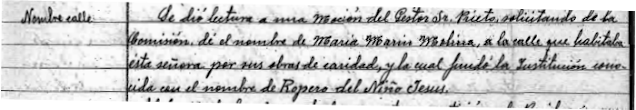 Nombre calle
Se dió lectura a una Moción del Gestor Sr. Prieto, solicitando de la
Comisión, dé el nombre de Maria Marin Molina, a la calle que habitaba
esta señora por sus obras de caridad, y la cual fundó la Institución cono-
cida con el nombre de Ropero del Niño Jesus.